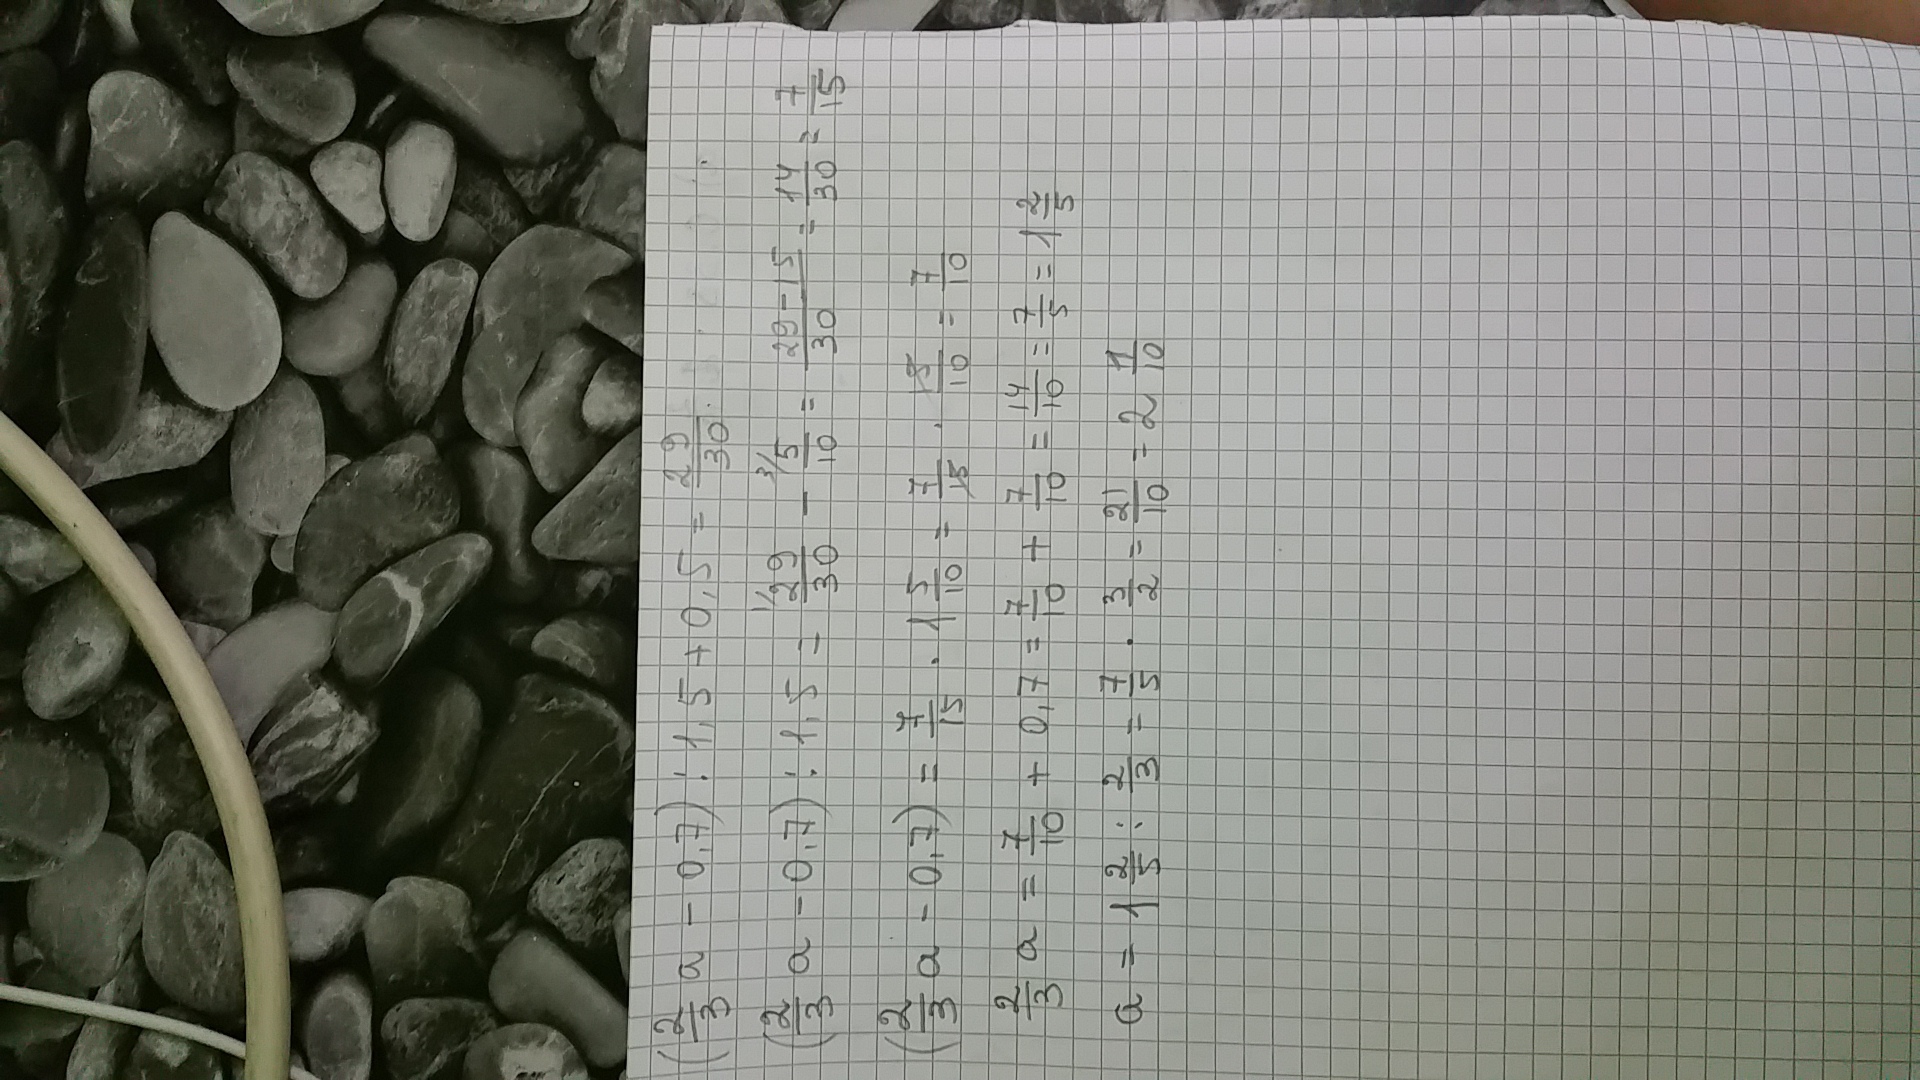 (2/3 a - 0,7) : 1,5 + 0,5 = 29/30
(2/3 a - 0,7) : 1,5 = 1/ 29/30 - 3/ 5/10 = 29-15/30 = 14/30 = 7/15
(2/3 a - 0,7) = 7/15 · 1 5/10 = 7/15 · 15/10 = 7/10
2/3 a = 7/10 + 0,7 = 7/10 + 7/10 = 14/10 = 7/5 = 1 2/5
a = 1 2/5 : 2/3 = 7/5 · 3/2 = 21/10 = 2 1/10